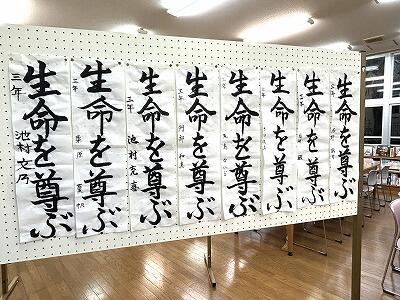 生命を尊ぶ
三年 池村文乃
生命を尊ぶ
三年
生命を尊ぶ
三年 池村
生命を尊ぶ
生命を尊ぶ
生命を尊ぶ
生命を尊ぶ
生命を尊ぶ